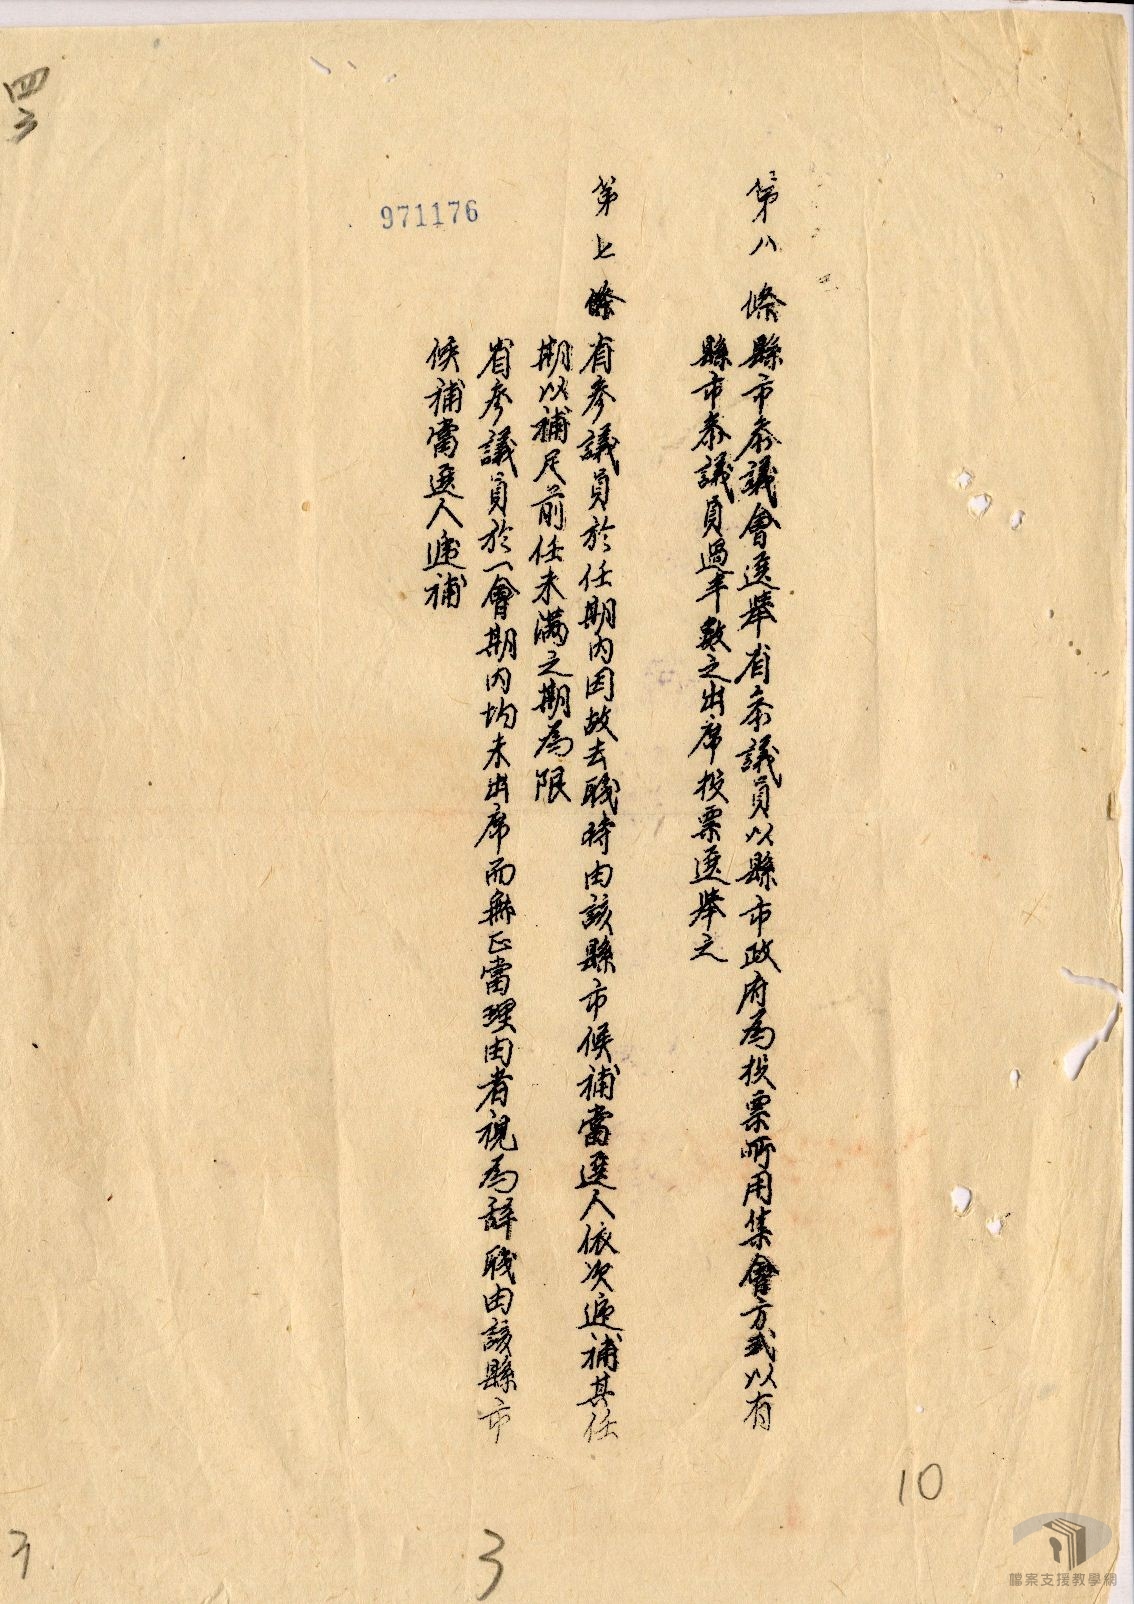 第八條縣市參議會選舉省參議員以縣市政府為投票所用集會方式以有
縣市參議員過半數之出席投票選舉之
第七條省參議員於任期內因故去職時由該縣市候補當選人依次遞補其任
期以補足前任未滿之期為限
省參議員於一會期內均未出席而無正當理由者視為辭職由該縣市
候補當選人遞補
971176
四
3
10
3
3
檔案支援教學網